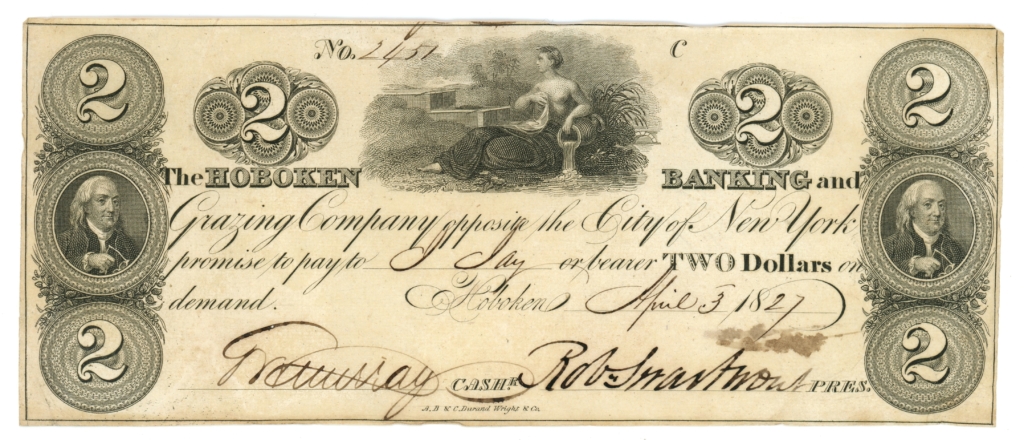 No. 2451 C
2 2 2 2
The HOBOKEN BANKING and
Grazing Company opposite the City of New York
promise to pay to J Jay or bearer TWO Dollars on
demand. Hoboken April 3 1827
2 2
Murray CASHR. Robt Swartwout PRES.
A. B & C. Durand Wright & Co.